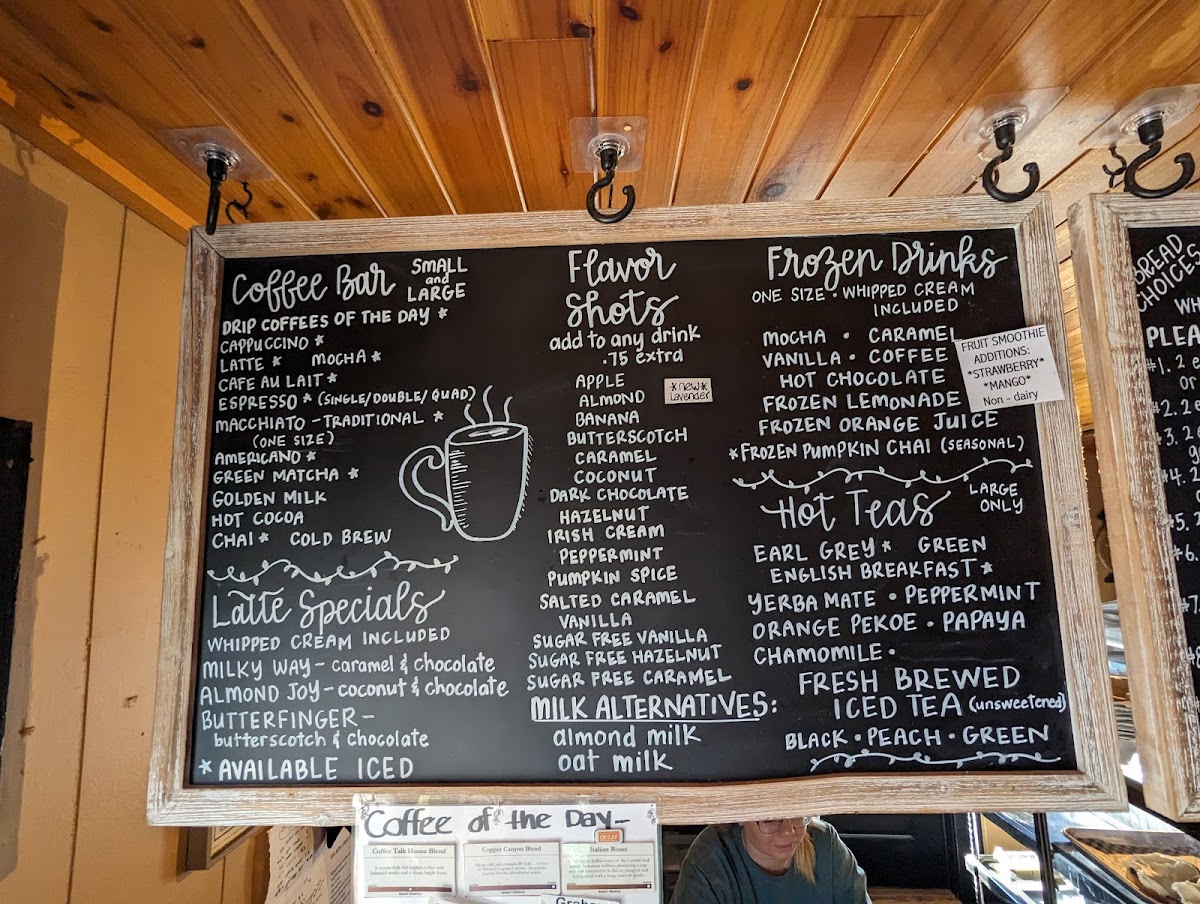 Coffee Bar SMALL and LARGE
DRIP COFFEES OF THE DAY *
CAPPUCCINO *
LATTE * MOCHA *
CAFE AU LAIT *
ESPRESSO * (SINGLE/DOUBLE/QUAD)
MACCHIATO - TRADITIONAL *
(ONE SIZE)
AMERICANO *
GREEN MATCHA *
GOLDEN MILK
HOT COCOA
CHAI * COLD BREW
Latte Specials
WHIPPED CREAM INCLUDED
MILKY WAY - caramel & chocolate
ALMOND JOY - coconut & chocolate
BUTTERFINGER -
butterscotch & chocolate
* AVAILABLE ICED
Flavor
Shots
add to any drink
.75 extra
APPLE
ALMOND
BANANA
BUTTERSCOTCH
CARAMEL
COCONUT
DARK CHOCOLATE
HAZELNUT
IRISH CREAM
PEPPERMINT
PUMPKIN SPICE
SALTED CARAMEL
VANILLA
SUGAR FREE VANILLA
SUGAR FREE HAZELNUT
SUGAR FREE CARAMEL
*new*
lavender
MILK ALTERNATIVES:
almond milk
oat milk
Frozen Drinks
ONE SIZE • WHIPPED CREAM
INCLUDED
MOCHA • CARAMEL
VANILLA • COFFEE
HOT CHOCOLATE
FROZEN LEMONADE
FROZEN ORANGE JUICE
*FROZEN PUMPKIN CHAI (SEASONAL)
FRUIT SMOOTHIE
ADDITIONS:
*STRAWBERRY*
*MANGO*
Non - dairy
Hot Teas LARGE ONLY
EARL GREY * GREEN
ENGLISH BREAKFAST *
YERBA MATE • PEPPERMINT
ORANGE PEKOE • PAPAYA
CHAMOMILE •
FRESH BREWED
ICED TEA (unsweetened)
BLACK • PEACH • GREEN
BREAD
CHOICES
WH
PLEA
#1. 2 e
or
#2. 2 e
#3. 2
#4. 2
#5.
#6.
#7
Coffee of the Day
Coffee Talk House Blend
Copper Canyon Blend
DECAF
Italian Roast
ROAST PROFILE
ROAST PROFILE
ROAST PROFILE